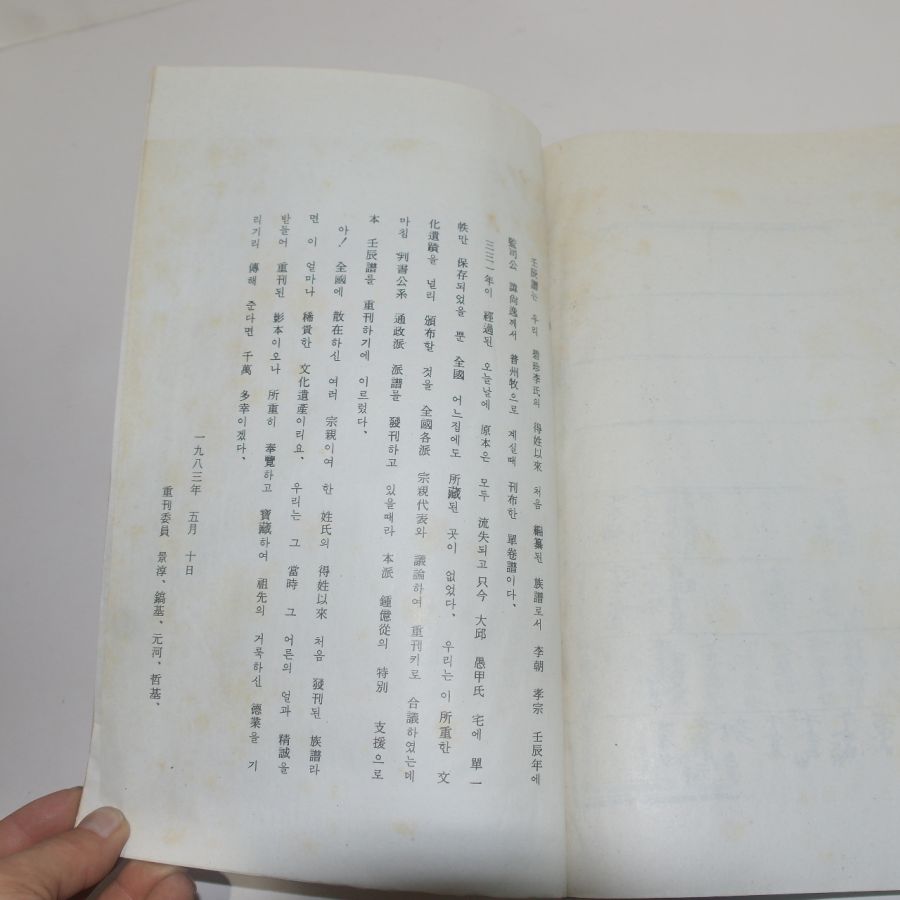 壬辰譜는 우리 碧珍李氏의 得姓以來 처음 編纂된 族譜로서 李朝 孝宗 壬辰年에
監司公 諱尙逸께서 晉州牧으로 계실때 刊布한 單卷譜이다、
三三一年이 經過된 오늘날에 原本은 모두 流失되고 只今 大邱 愚甲氏 宅에 單一
帙만 保存되었을 뿐 全國 어느집에도 所藏된 곳이 없었다、 우리는 이 所重한 文
化遺蹟을 널리 頒布할 것을 全國各派 宗親代表와 議論하여 重刊키로 合議하였는데
마침 判書公系 通政派 派譜를 發刊하고 있을때라 本派 鍾億從의 特別 支援으로
本 壬辰譜를 重刊하기에 이르렀다、
아! 全國에 散在하신 여러 宗親이여 한 姓氏의 得姓以來 처음 發刊된 族譜라
면 이 얼마나 稀貴한 文化遺產이리요、 우리는 그 當時 그 어른의 얼과 精誠을
받들어 重刊된 影本이오나 所重히 奉覽하고 寶藏하여 祖先의 거룩하신 德業을 기
리기리 傳해 준다면 千萬 多幸이겠다、
一九八三年 五月 十日
重刊委員 景淳、鎬基、元河、哲基、